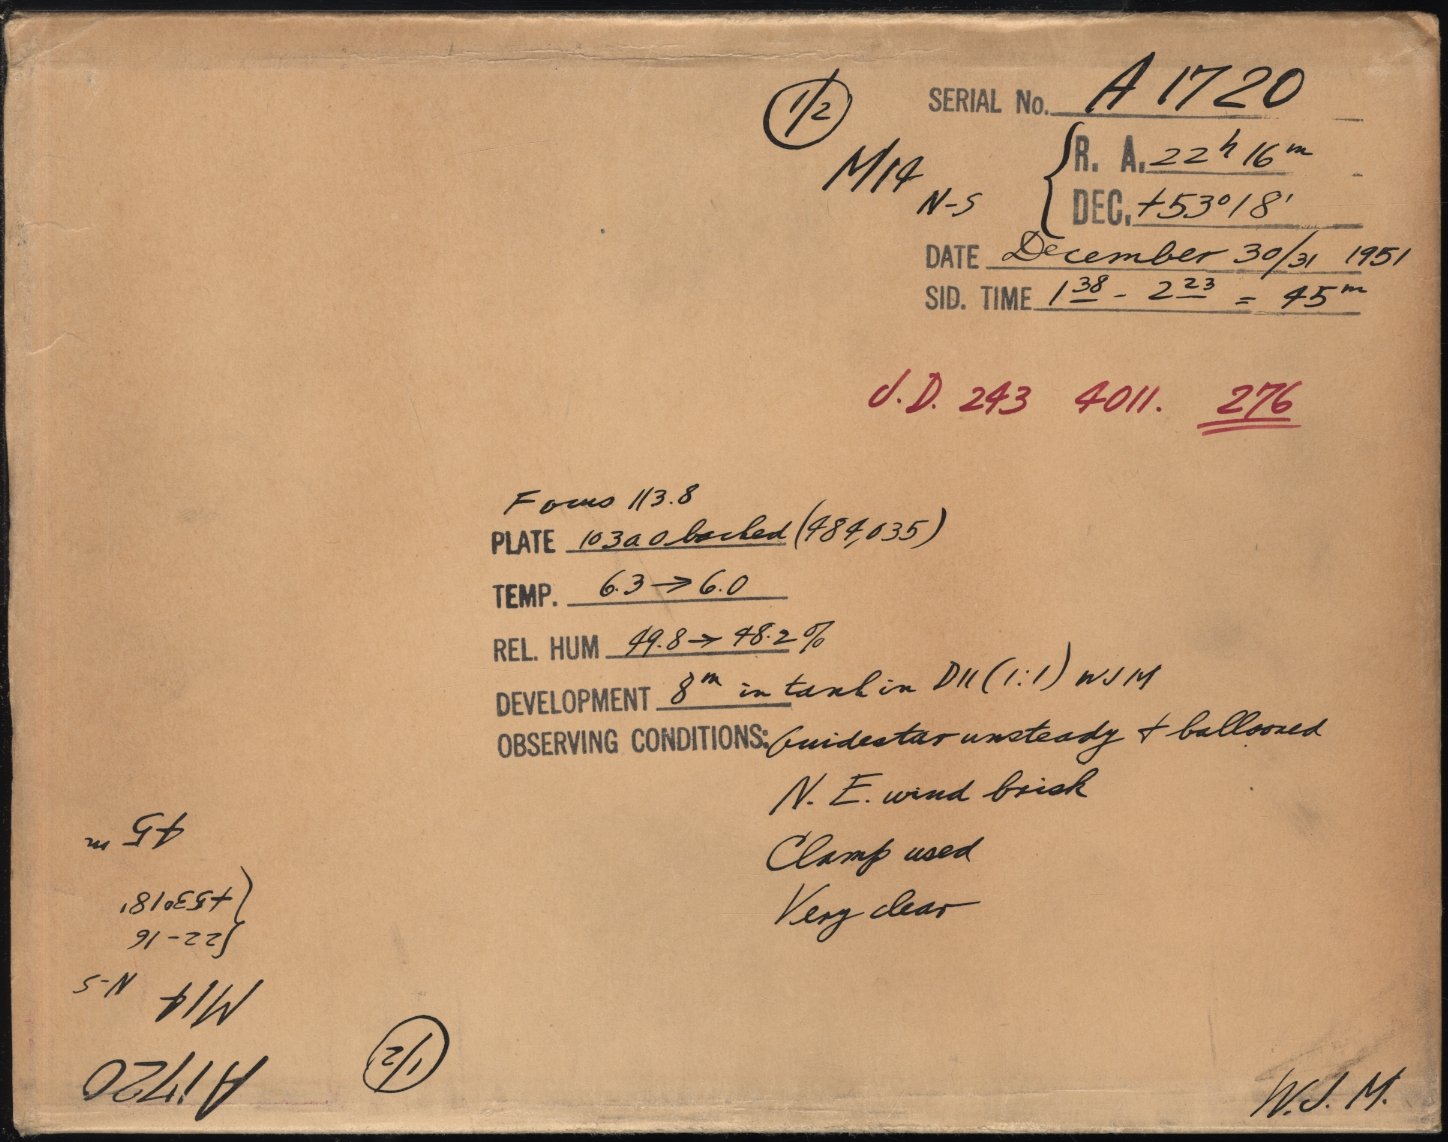 1/2
SERIAL No. A 1720
M14 N-S
R. A. 22h 16m
DEC. +53°18'
DATE December 30/31 1951
SID. TIME 1 38 - 2 23 = 45m
J.D. 243 4011. 276
Focus 113.8
PLATE 103aO backed (484,035)
TEMP. 6.3 → 6.0
REL. HUM 49.8 → 48.2 %
DEVELOPMENT 8m in tank in D11 (1:1) WJM
OBSERVING CONDITIONS: Guidestar unsteady + ballooned
N. E. wind brisk
Clamp used
Very clear
W.J.M.
1/2
A1720
M14 N-S
22-16
+53°18'
45 m